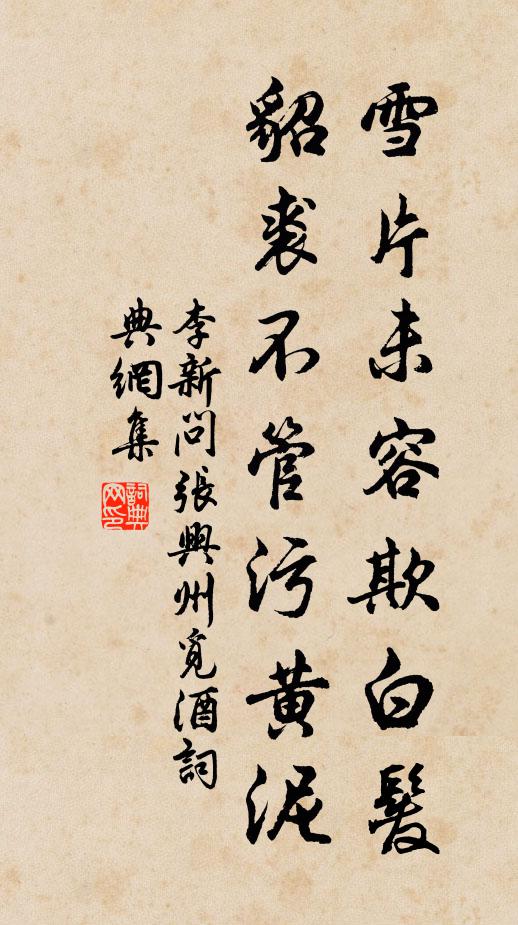 雪片未容欺白髮
貂裘不管污黃泥
李新問張興州覓酒詞
典網集
詞典
网印